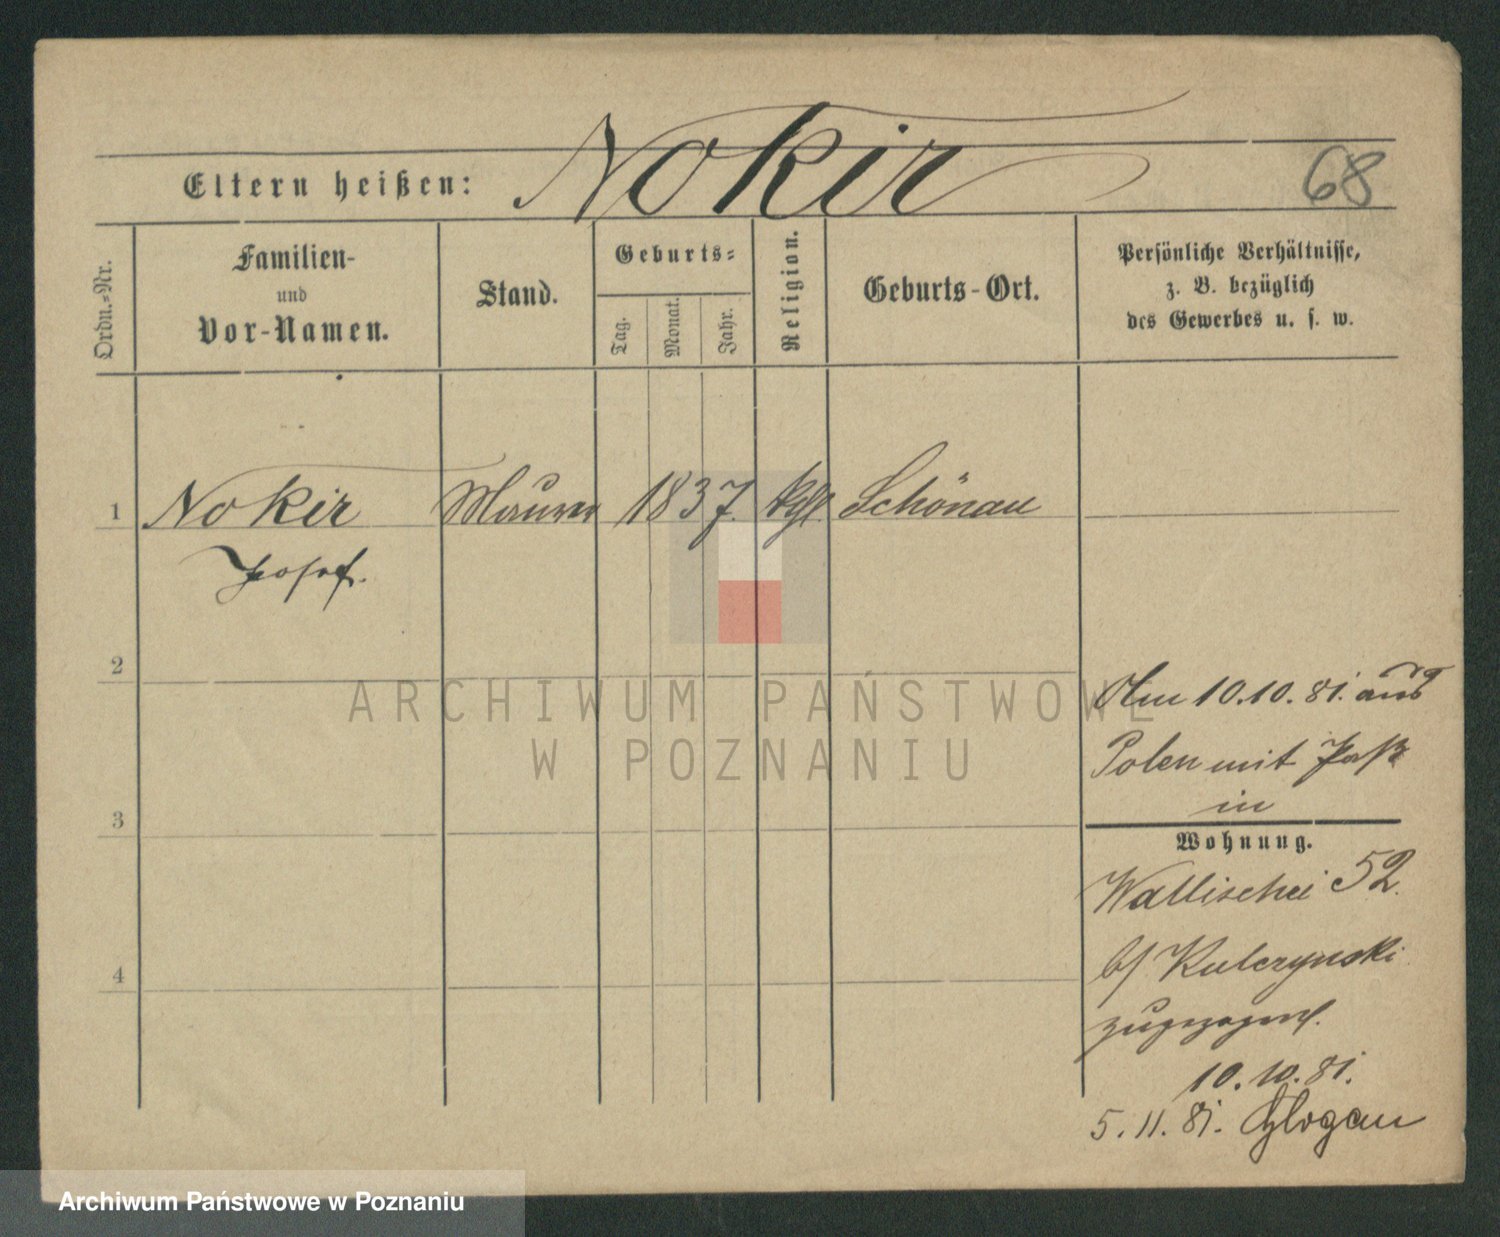 Nokir
68
Eltern heißen:
Ordn.-Nr.
Familien-
und
Vor-Namen.
Stand.
Geburts-
Tag.
Monat.
Jahr.
Religion.
Geburts-Ort.
Persönliche Verhältnisse,
z. B. bezüglich
des Gewerbes u. s. w.
1 Nokir Maurer 1837. kath Schönau
Josef.
2
ARCHIWUM PAŃSTWOWE
W POZNANIU
Am 10.10.81. aus
Polen mit Paß
in
3
Wohnung.
Wallischei 52.
b/ Kulczynski
zugezogen.
4
10.10.81.
5.11.81. Glogau
Archiwum Państwowe w Poznaniu